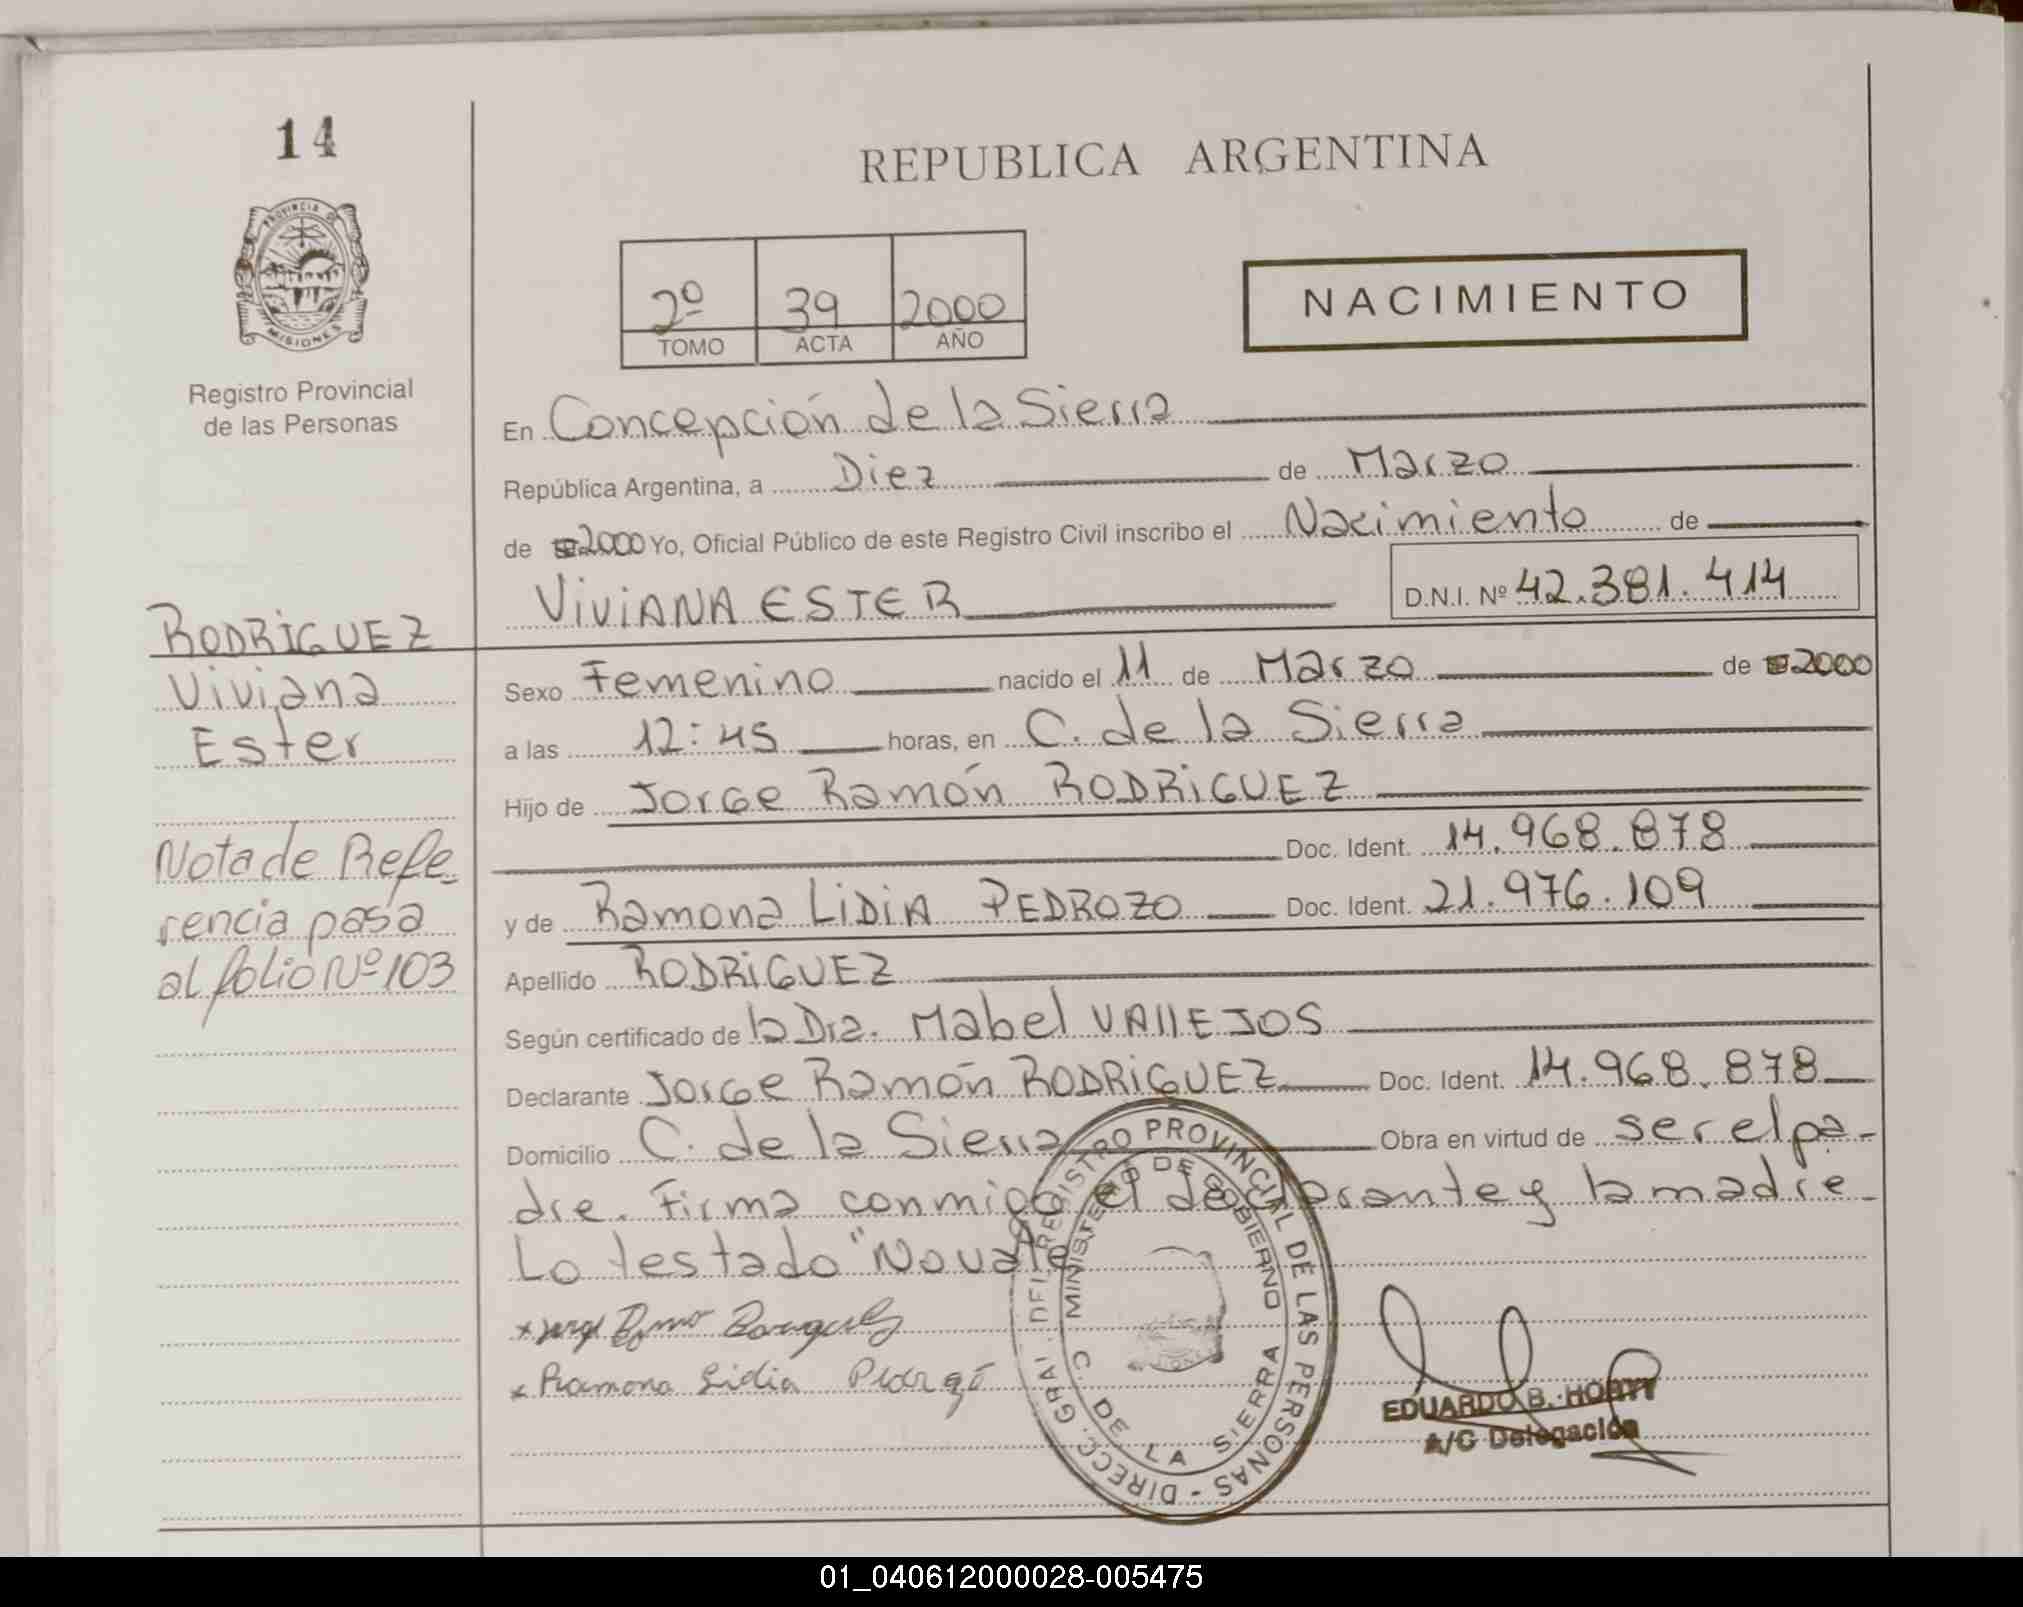 14
PROVINCIA DE
MISIONES
Registro Provincial
de las Personas
REPUBLICA ARGENTINA
2º 39 2000
TOMO ACTA AÑO
NACIMIENTO
En Concepción de la Sierra
República Argentina, a Diez de Marzo
de 2000 Yo, Oficial Público de este Registro Civil inscribo el Nacimiento de
VIVIANA ESTER D.N.I. Nº 42.381.414
RODRIGUEZ
Viviana
Ester
Nota de Refe-
rencia pasa
al folio Nº 103
Sexo Femenino nacido el 11 de Marzo de 2000
a las 12:45 horas, en C. de la Sierra
Hijo de Jorge Ramón RODRIGUEZ
Doc. Ident. 14.968.878
y de Ramona LIDIA PEDROZO Doc. Ident. 21.976.109
Apellido RODRIGUEZ
Según certificado de la Dra. Mabel VAllEJOS
Declarante Jorge Ramón RODRIGUEZ Doc. Ident. 14.968.878
Domicilio C. de la Sierra Obra en virtud de ser el pa-
dre. Firma conmigo el declarante y la madre.
Lo testado "No vale
Ramona Lidia
DIRECC. GRAL. DEL REGISTRO PROVINCIAL DE LAS PERSONAS -
MINISTERIO DE GOBIERNO
C. DE LA SIERRA
EDUARDO B. HORTT
A/C Delegación
01_040612000028-005475